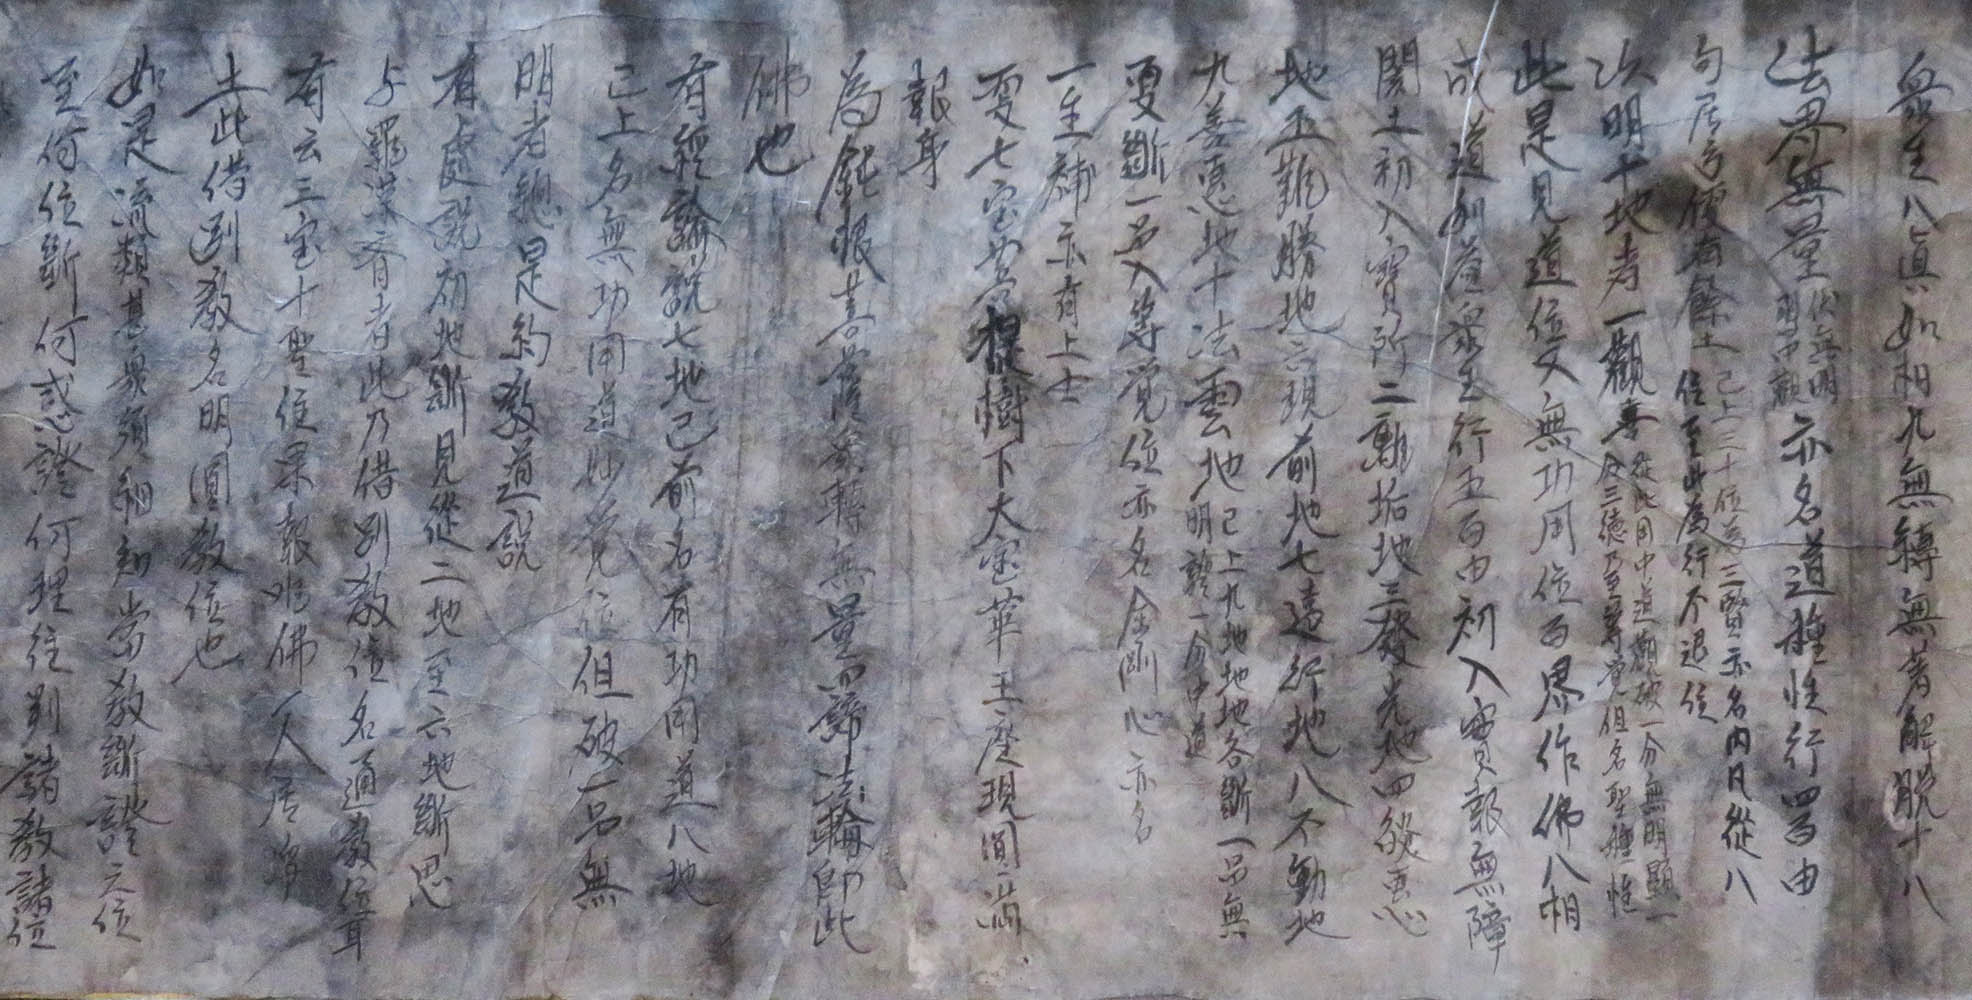 眾生八真如相九無縛無著解脫十入
法界無量伏無明習中觀亦名道種性行四百由
旬居方便有餘土已上三十位為三賢亦名內凡從八住至此為行不退位
次明十地者一觀喜從此用中道觀破一分無明顯一分三德乃至等覺但名聖種性
此是見道位又無功用位百界作佛八相
成道利益眾生行五百由初入實報無障
閡土初入寶所二離垢地三發光地四燄惠
地五難勝地六現前地七遠行地八不動地
九善惠地十法雲地已上九地地地各斷一品無明證一分中道
更斷一品入等覺位亦名金剛心亦名
一生補亦有上士
更七宝菩提樹下大宝華王座現圓滿
報身
為鈍根菩薩眾轉無量四諦法輪即此
佛也
有經論說七地已前名有功用道八地
已上名無功用道妙覺位但破一品無
明者總是約教道說
有處說初地斷見從二地至六地斷思
与羅漢齊者此乃借別教位名通教位耳
有云三宝十聖住果報唯佛一人居淨
土此借別教名明圓教位也
如是流類甚眾須細知當教斷證之位
至何位斷何惑證何理往判諸教諸位